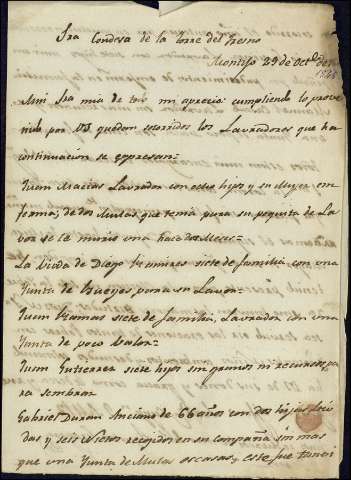 Sra Condesa de la torre del fresno
Montijo 29 de Octe. de
1868
Mui Sra mia de todo mi aprecio cumpliendo lo preve
nido por VS quedan socorridos los Lavradores que ha
continuacion se espresan=
Juan Macias Lavrador con ocho hijos y su Muger en
ferma; de dos Mulas que tenia para su pequita de La
vor se le murio una hace dos Meses=
La Viuda de Diego siete de familia con una
Yunta de Bueyes para su Lavor=
Juan Gramas siete de familia, Lavrador con una
Yunta de poco balor=
Juan Gutierrez siete hijos sin granos ni recursos pa
ra sembrar
Gabriel Duran Anciano de 66 años con dos hijas
das y seis Nietos recojidos en su compañia sin mas
que una Yunta de Mulas escasas, y este fue